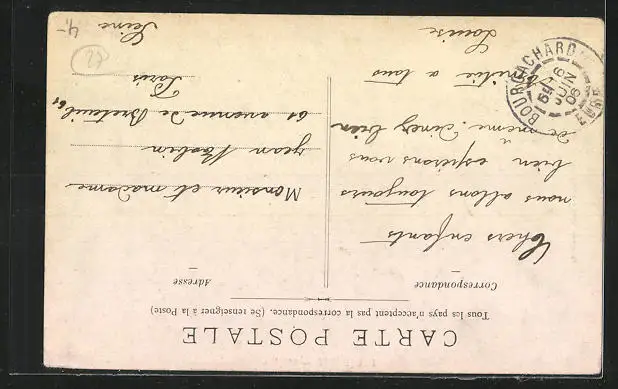 CARTE POSTALE
Tous les pays n'acceptent pas la correspondance. (Se renseigner à la Poste)
Correspondance
Adresse
Chers enfants
nous allons toujours
bien espérons vous
de même. Dinez bien
Amitié a tous
Louise
Monsieur et madame
Jean
61 avenue de Breteuil 61
Paris
Seine
BOURGACHARD
6
JUIN
06
EURE
27
4-